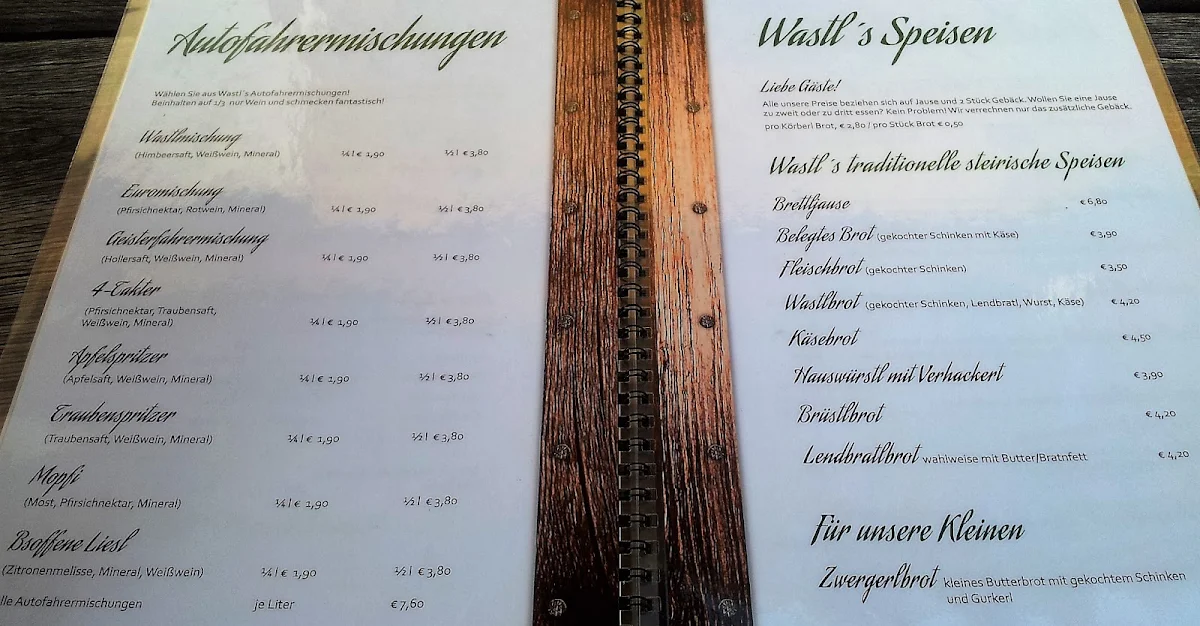 Autofahrermischungen
Wählen Sie aus Wastl´s Autofahrermischungen!
Beinhalten auf 1/3 nur Wein und schmecken fantastisch!
Wastlmischung
(Himbeersaft, Weißwein, Mineral) ¼ l € 1,90 ½ l € 3,80
Euromischung
(Pfirsichnektar, Rotwein, Mineral) ¼ l € 1,90 ½ l € 3,80
Geisterfahrermischung
(Hollersaft, Weißwein, Mineral) ¼ l € 1,90 ½ l € 3,80
4-Takter
(Pfirsichnektar, Traubensaft,
Weißwein, Mineral) ¼ l € 1,90 ½ l € 3,80
Apfelspritzer
(Apfelsaft, Weißwein, Mineral) ¼ l € 1,90 ½ l € 3,80
Traubenspritzer
(Traubensaft, Weißwein, Mineral) ¼ l € 1,90 ½ l € 3,80
Mopfi
(Most, Pfirsichnektar, Mineral) ¼ l € 1,90 ½ l € 3,80
Bsoffene Liesl
(Zitronenmelisse, Mineral, Weißwein) ¼ l € 1,90 ½ l € 3,80
lle Autofahrermischungen je Liter € 7,60
Wastl´s Speisen
Liebe Gäste!
Alle unsere Preise beziehen sich auf Jause und 2 Stück Gebäck. Wollen Sie eine Jause
zu zweit oder zu dritt essen? Kein Problem! Wir verrechnen nur das zusätzliche Gebäck.
pro Körberl Brot, € 2,80 / pro Stück Brot € 0,50
Wastl´s traditionelle steirische Speisen
Brettljause € 6,80
Belegtes Brot (gekochter Schinken mit Käse) € 3,90
Fleischbrot (gekochter Schinken) € 3,50
Wastlbrot (gekochter Schinken, Lendbratl, Wurst, Käse) € 4,20
Käsebrot € 4,50
Hauswürstl mit Verhackert € 3,90
Brüstlbrot € 4,20
Lendbratlbrot wahlweise mit Butter/Bratnfett € 4,20
Für unsere Kleinen
Zwergerlbrot kleines Butterbrot mit gekochtem Schinken
und Gurkerl